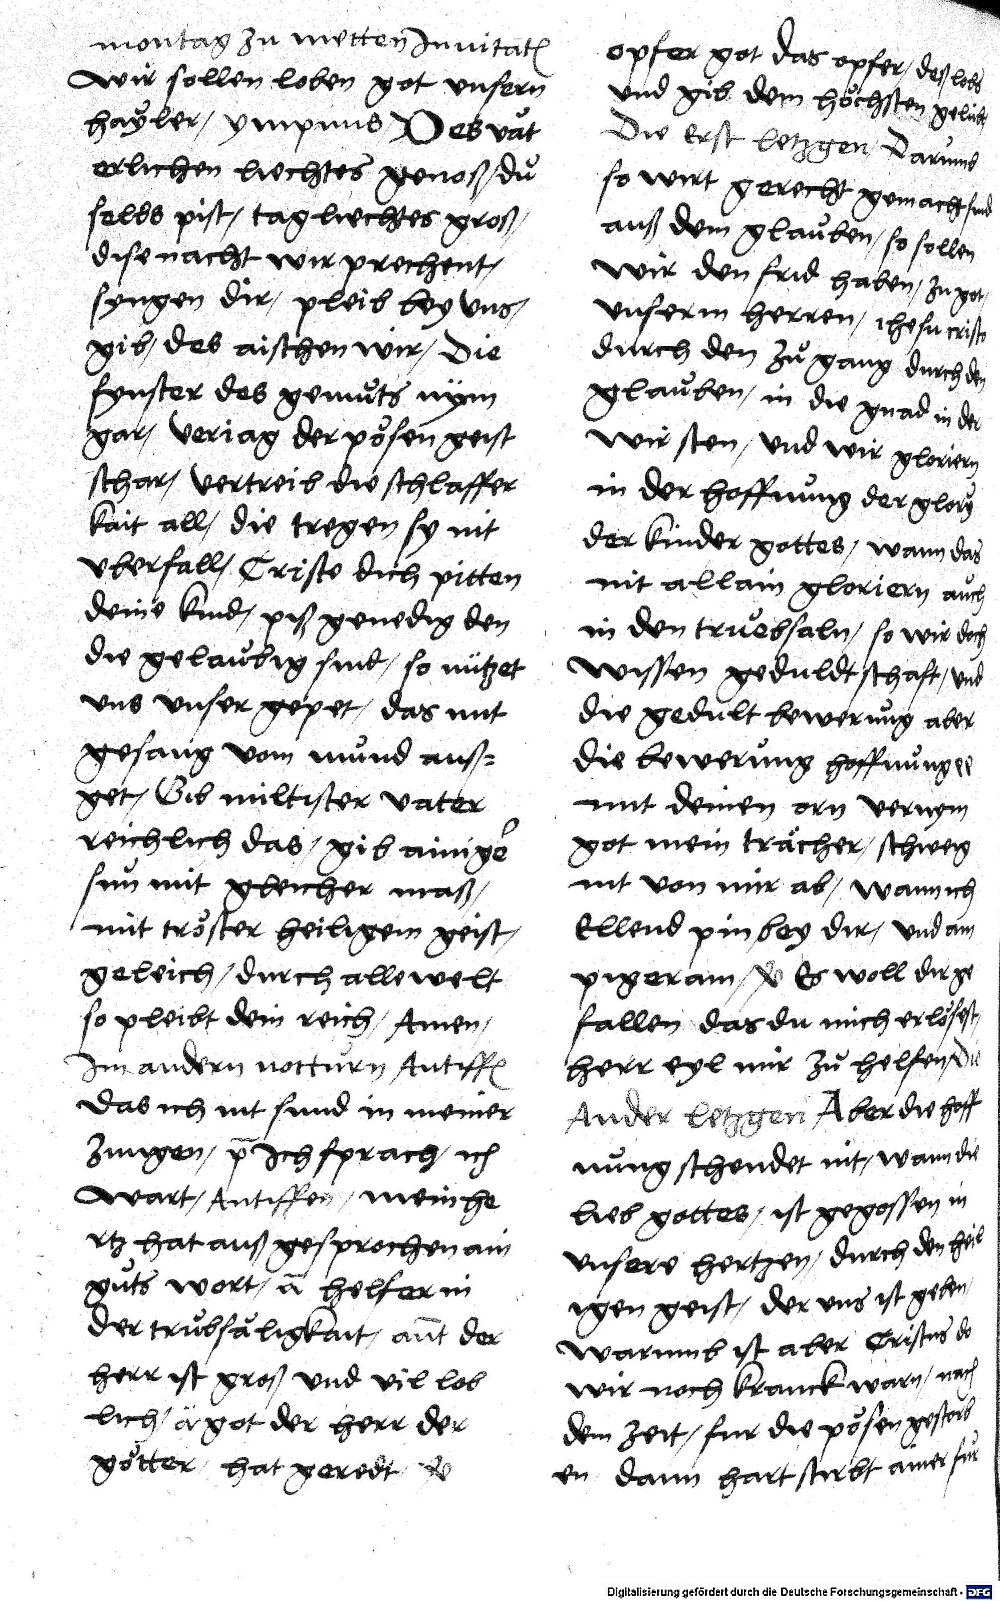 montag zu metten Inuitat
wir sollen loben got unsern
hayler / ympnus / Des vät
erlichen liechtes genoß / du
selbs pist / tag liechtes groß /
dise nacht wir prechent /
syngen dir / pleib bey uns /
gib / des aischen wir / Die
fynster des gemůts nÿm
gar / veriag der pößen geist
schar / vertreib die schlaffer
kait all / die tregen sy nit
vberfall / Criste dich pitten
deine kind / piß genedig den
die gelaubig sind / so nützet
uns unser gepet / das mit
gesang vom mund auß=
get / Gib miltister vater
reichlich das / gib ainiger
sun mit gleicher maß /
mit tröster heiligem geist /
geleich / durch alle welt
so pleibt dein reich / Amen /
Im andern notturn Antiff
das ich nit sund in meiner
zungen / p̄ Ich sprach / ich
wart / Antiffen / mein he
rtz hat auß gesprochen ain
gůts wort / ā helfer in
der trůbsäligkait / ant̄ der
herr ist groß / und vil lob
lich / ā got der herr der
götter / hat geredt
opfer got das opfer / deß lobs
und gib dem höchsten gelübt
Die erst letzgen / Darumb
so wirt gerecht gemacht sind
auß dem glauben / so sollen
wir den frid haben / zu got /
unserm herren / ihesu cristo
durch den zů gang durch den
glauben / in die gnad in der
wir sten / und wir gloriern
in der hoffnung der glory
der kinder gottes / wann das
nit allain gloriern auch
in den truebsaln / so wir doch
wissen geduldt schaft / und
die gedult bewerung aber
die bewerung hoffnung
mit deinen orn vernym
got mein trächer / schweig
nit von mir ab / wann ich
Ellend pin bey dir / und ain
pigeram / Es woll dir ge
fallen das du mich erlößest /
herr eyl mir zů helfen / Die
Ander letzgen Aber die hoff
nung schendet nit / wann die
lieb gottes / ist gegossen in
unsere hertzen / durch den heil
igen geist / der uns ist geben /
warumb ist aber Cristus do
wir noch kranck warn / nach
dem zeit / fur die pößen gestorb
en dann hart stirbt ainer für
Digitalisierung gefördert durch die Deutsche Forschungsgemeinschaft - DFG